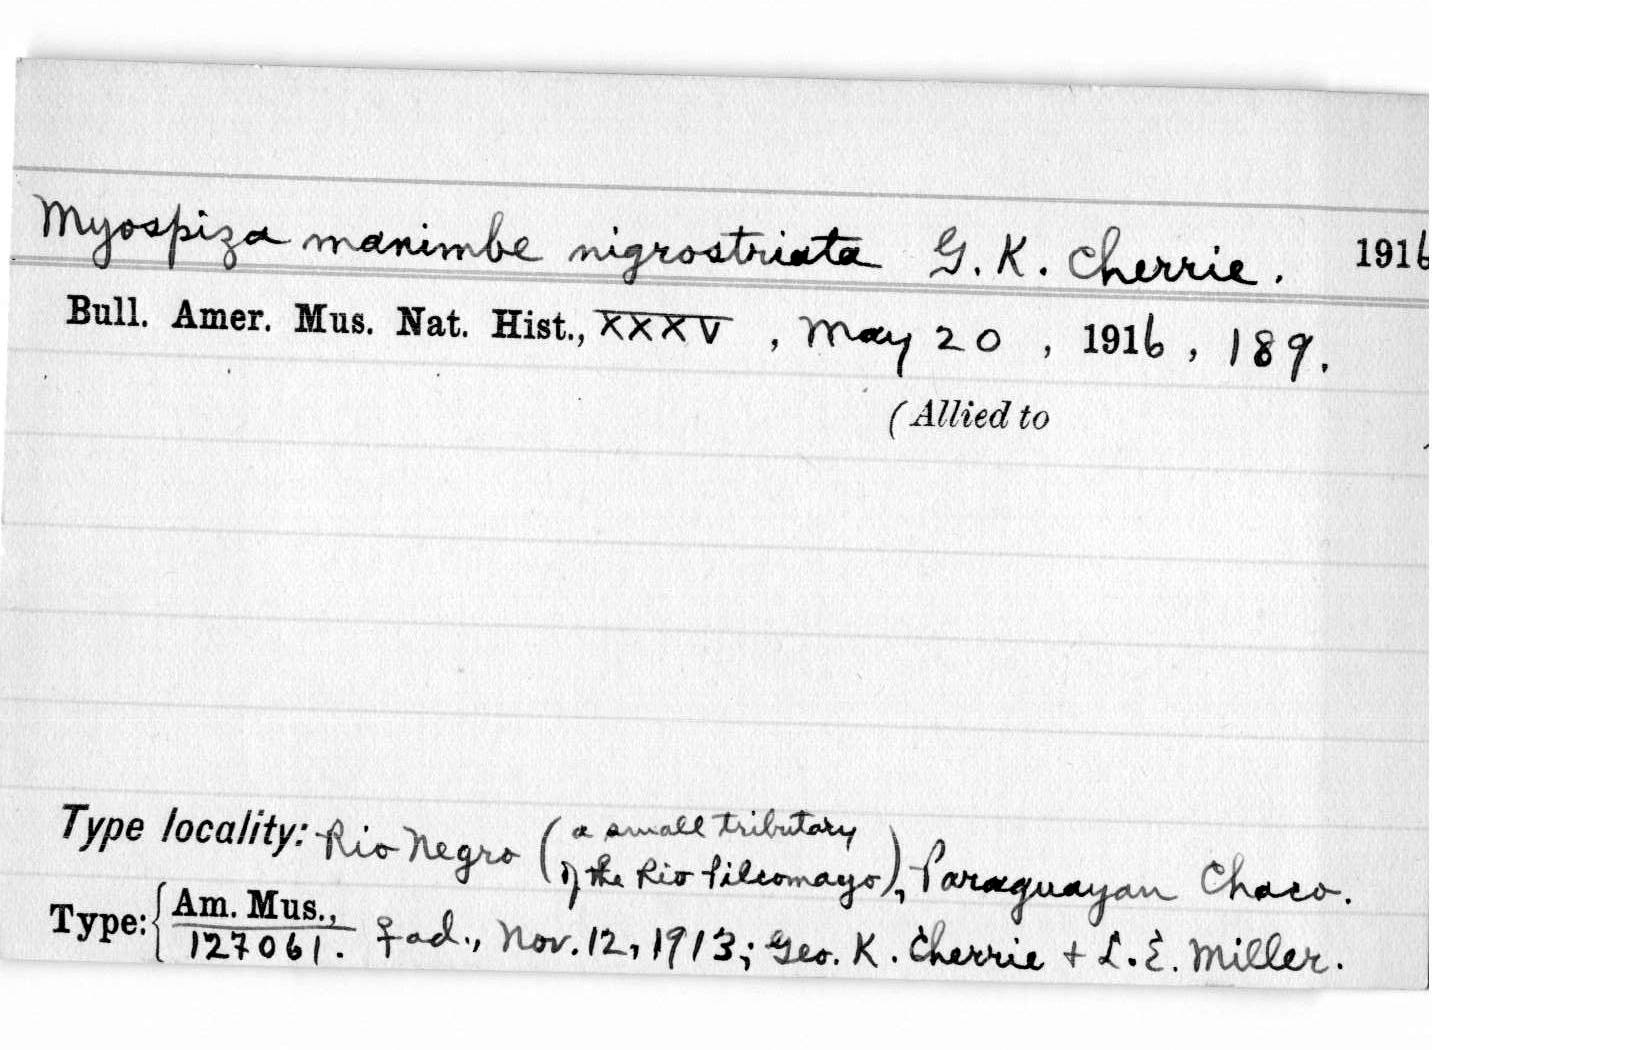 Myospiza manimbe nigrostriata G. K. Cherrie. 1916
Bull. Amer. Mus. Nat. Hist., XXXV, May 20, 1916, 189.
(Allied to
Type locality: Rio Negro (a small tributary
of the Rio Pilcomayo), Paraguayan Chaco.
Type: { Am. Mus.,
127061. ♀ ad., Nov. 12, 1913; Geo. K. Cherrie + L. E. Miller.